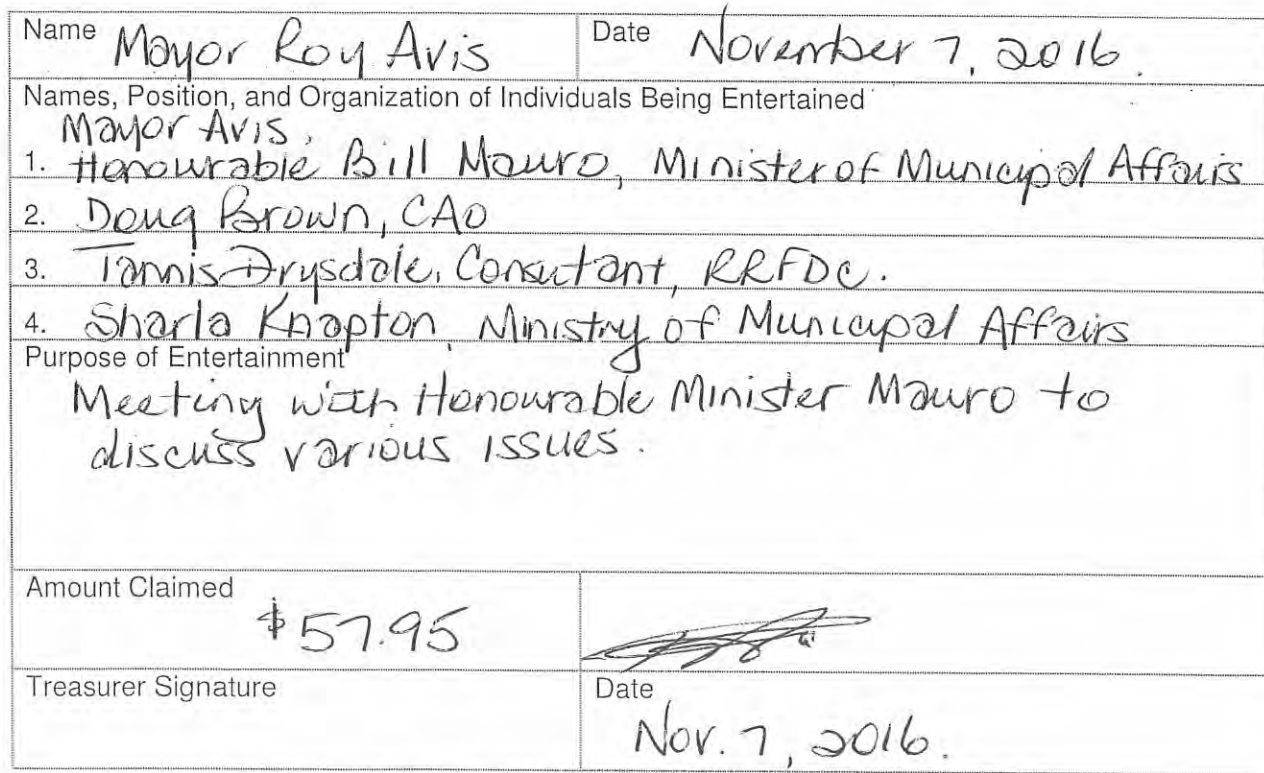 Name Mayor Roy Avis Date November 7, 2016.
Names, Position, and Organization of Individuals Being Entertained
Mayor Avis,
1. Honourable Bill Mauro, Minister of Municipal Affairs
2. Doug Brown, CAO
3. Tannis Drysdale, Consutant, RRFDC.
4. Sharla Knapton, Ministry of Municipal Affairs
Purpose of Entertainment
Meeting with Honourable Minister Mauro to
discuss various issues.
Amount Claimed
$57.95
Treasurer Signature Date
Nov. 7, 2016.